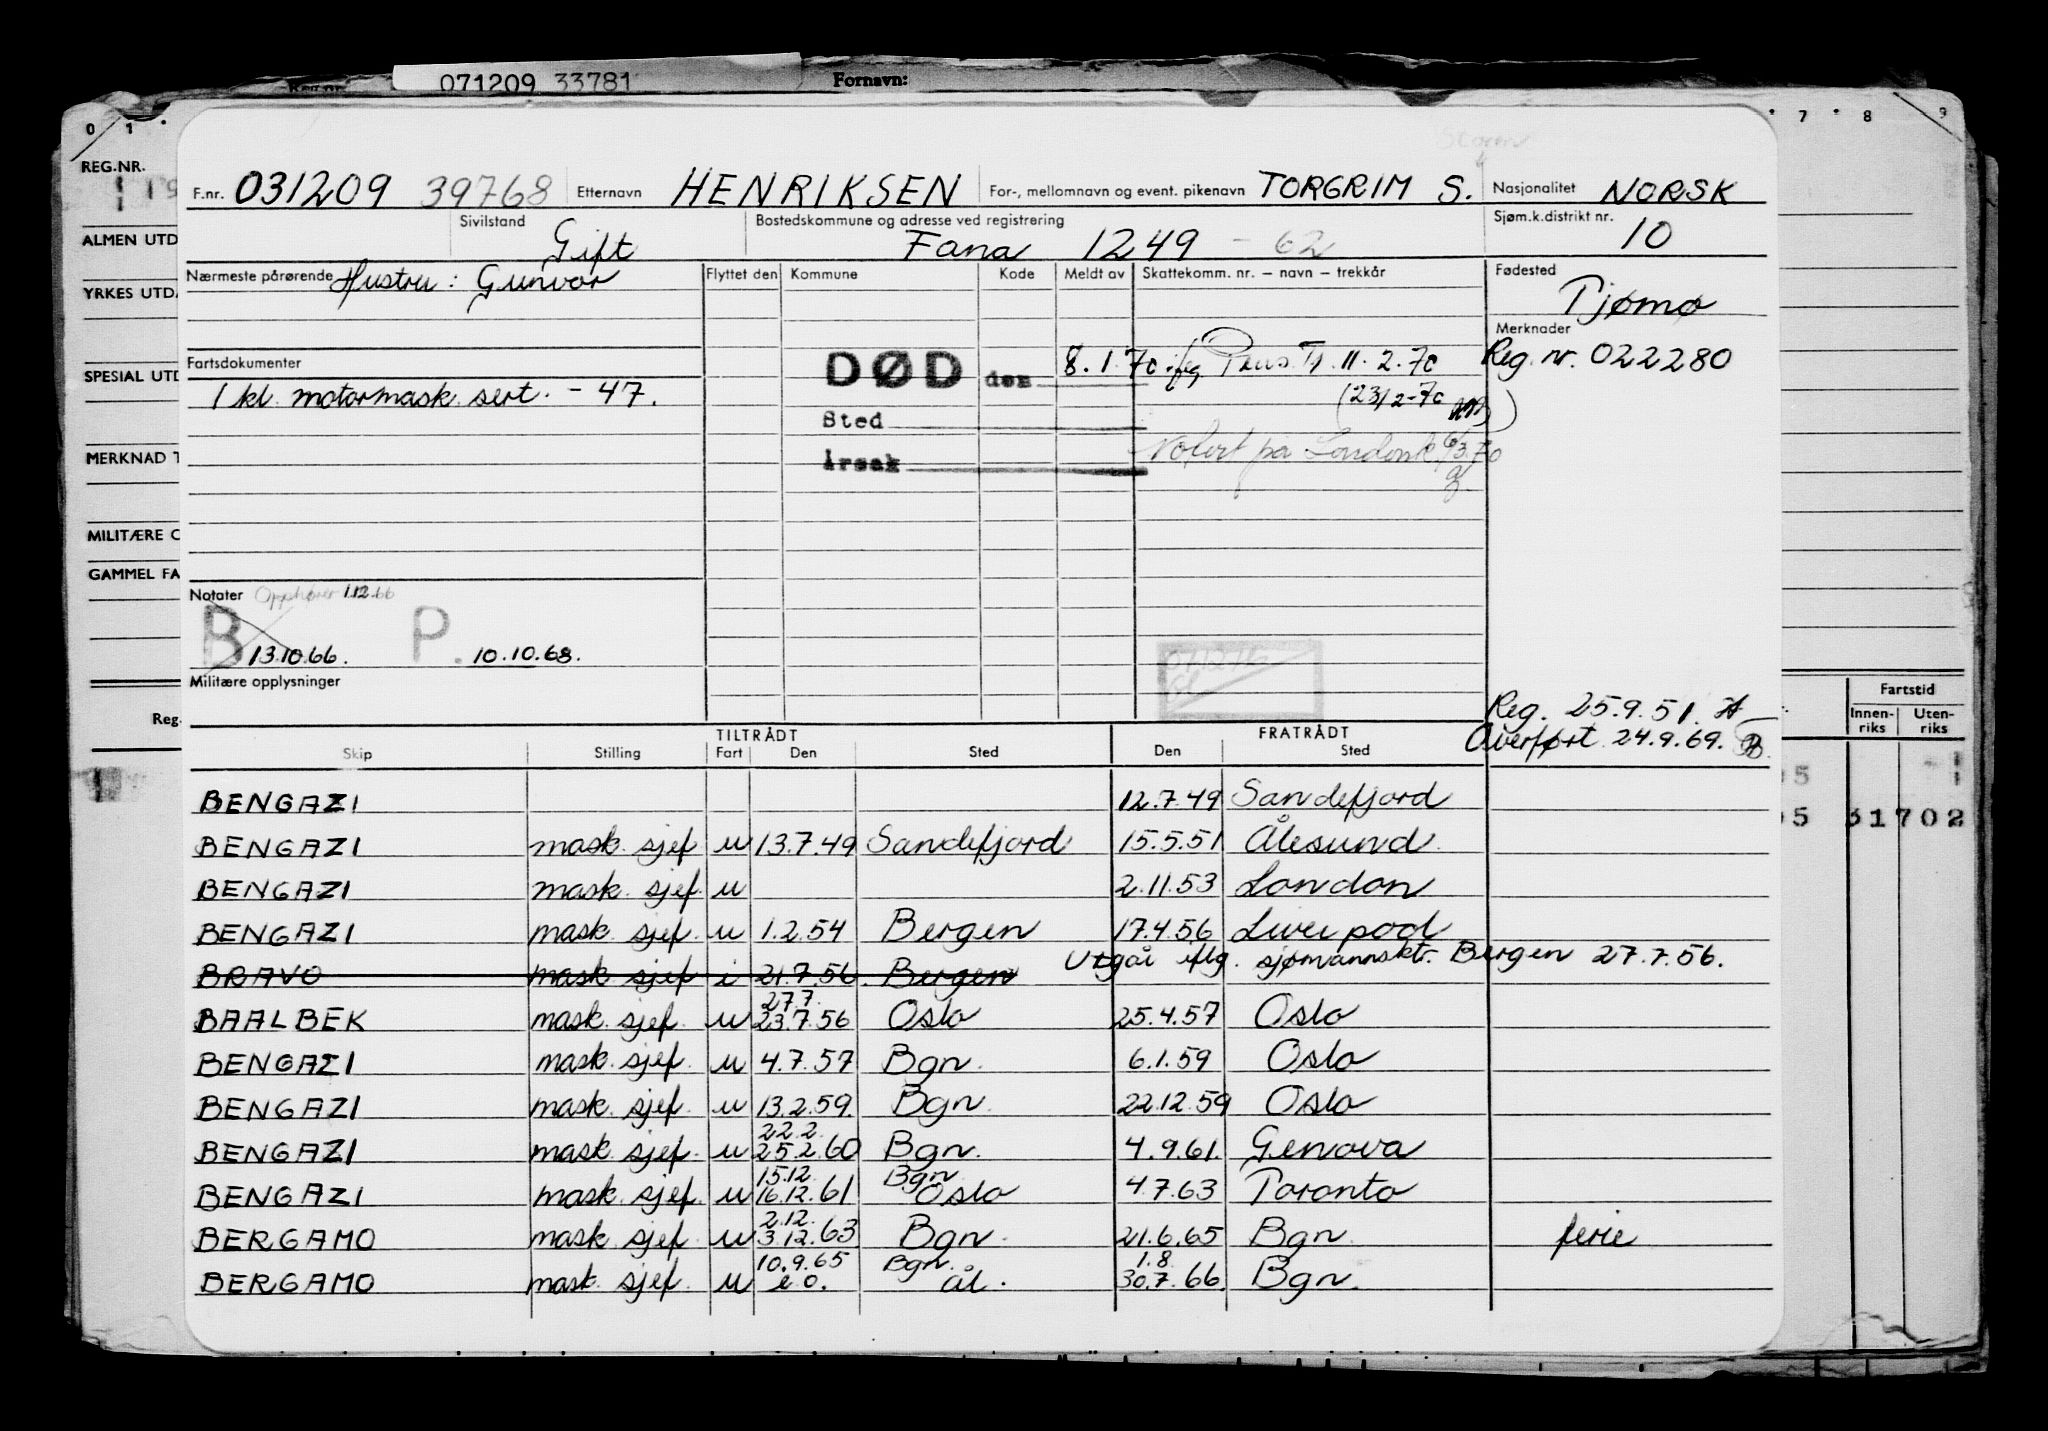 071209 33781 Fornavn:
0 1 7 8 9
REG.NR.
ALMEN UTD
YRKES UTD
SPECIAL UTD
MERKNAD T
MILITÆRE O
GAMMEL FA
Reg.
Fartstid
Innen-riks Uten-riks
05 31702
F.nr. 031209 39768 Etternavn HENRIKSEN For-, mellomnavn og event. pikenavn TORGRIM S. Nasjonalitet NORSK
Sivilstand Gift Bostedskommune og adresse ved registrering Fana 1249 - 62 Sjøm.k.distrikt nr. 10
Nærmeste pårørende Hustru: Gunvor Flyttet den Kommune Kode Meldt av Skattekomm. nr. – navn – trekkår Fødested Tjømø
Merknader
Reg. nr. 022280
Fartsdokumenter
1 kl. motormask. sert. - 47.
DØD den 8.1.70 ifg Pens. Tr. 11.2.70
(23/2-70)
Sted
Årsak
Notert på
Notater Opphører 1.12.66
B 13.10.66. P. 10.10.68.
Militære opplysninger
Reg. 25.9.51.
Overført 24.9.69.
TILTRÅDT FRATRÅDT
Skip Stilling Fart Den Sted Den Sted
BENGAZI 12.7.49 Sandefjord
BENGAZI mask. sjef u 13.7.49 Sandefjord 15.5.51 Ålesund
BENGAZI mask. sjef. u 2.11.53 London
BENGAZI mask. sjef. u 1.2.54 Bergen 17.4.56 Liverpool
BRAVO mask sjef i 21.7.56 Bergen Utgår iflg. sjømannsktr. Bergen 27.7.56.
27.7.
BAALBEK mask. sjef. u 23.7.56 Oslo 25.4.57 Oslo
BENGAZI mask. sjef. u 4.7.57 Bgn. 6.1.59 Oslo
BENGAZI mask. sjef. u 13.2.59 Bgn. 22.12.59 Oslo
22.2.
BENGAZI mask. sjef. u 25.2.60 Bgn. 4.9.61. Genova
15.12. Bgn
BENGAZI mask. sjef. u 16.12.61 Oslo 4.7.63 Toronto
2.12.
BERGAMO mask. sjef. u 3.12.63 Bgn. 21.6.65 Bgn. ferie
10.9.65 Bgn. 1.8.
BERGAMO mask. sjef. u e.o. ål. 30.7.66. Bgn.